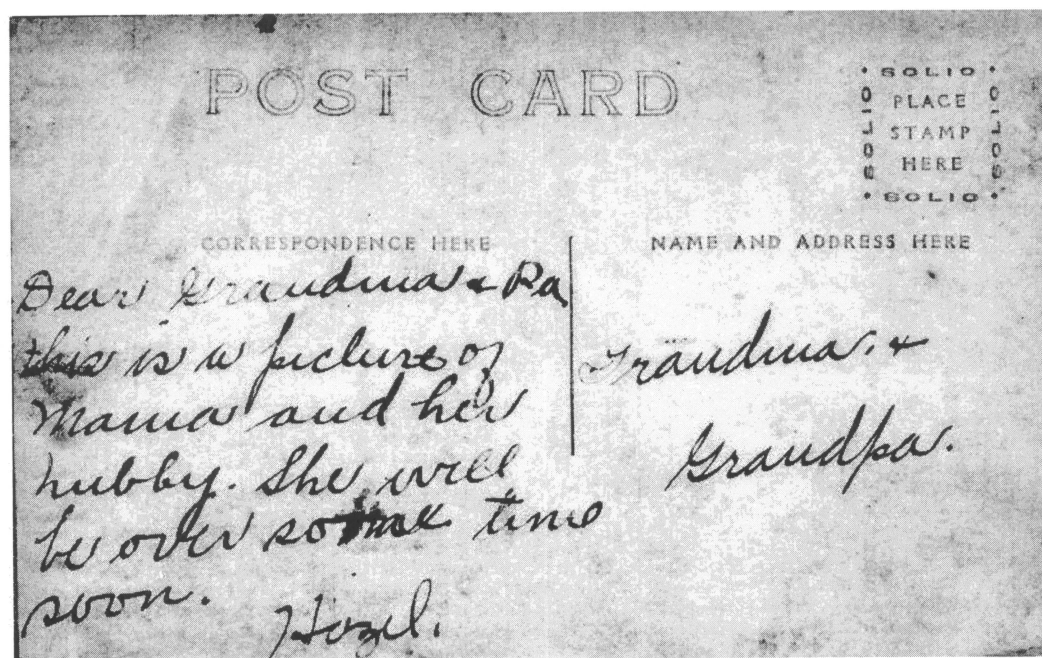 POST CARD
SOLIO
SOLIO
PLACE
STAMP
HERE
SOLIO
SOLIO
CORRESPONDENCE HERE
NAME AND ADDRESS HERE
Dear Grandma & Pa
this is a picture of
Mama and her
hubby. She will
be over some time
soon.
Hazel.
Grandma. &
Grandpa.